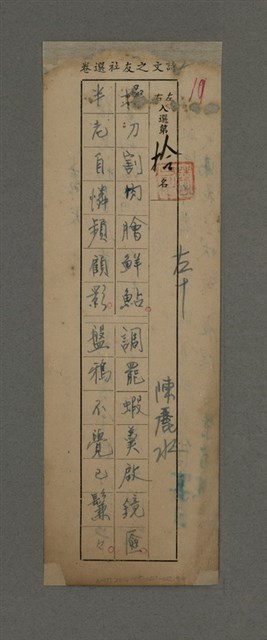 詩文之友社選卷
19
左右入選第拾名
左十
陳麗水
操刀割肉膾鮮鮎調罷蝦羹啟鏡匳
半老自憐頻顧影盤鴉不覺已鬖々